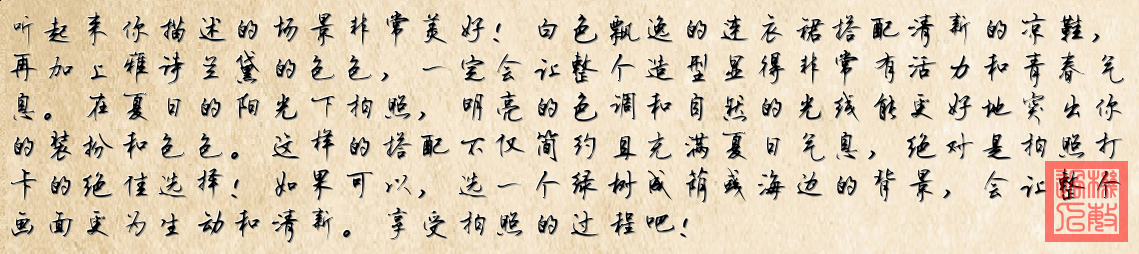 听起来你描述的场景非常美好！白色飘逸的连衣裙搭配清新的凉鞋，
再加上雅诗兰黛的色色，一定会让整个造型显得非常有活力和青春气
息。在夏日的阳光下拍照，明亮的色调和自然的光线能更好地突出你
的装扮和色色。这样的搭配不仅简约且充满夏日气息，绝对是拍照打
卡的绝佳选择！如果可以，选一个绿树成荫或海边的背景，会让整个
画面更为生动和清新。享受拍照的过程吧！